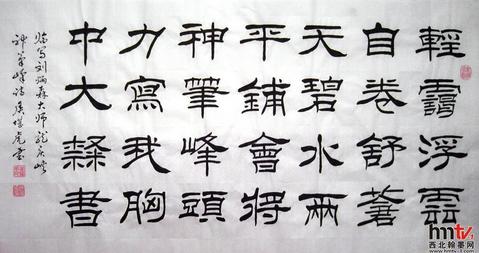 輕靄浮雲
自卷舒蒼
天碧水兩
平鋪會將
神筆峰頭
力寫我胸
中大隸書
临写刘炳森大师龙庆峡
神笔峰诗
hmtv
西北翰墨网